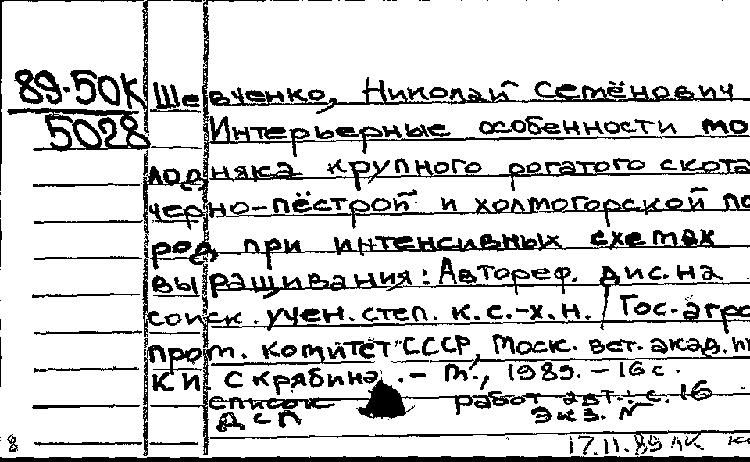 89-50К Шевченко, Николай Семёнович
5028 Интерьерные особенности мо
лодняка крупного рогатого скота
черно-пёстрой и холмогорской по
род при интенсивных схемах
выращивания: Автореф. дис. на
соиск. учен. степ. к.с.-х.н. / Гос. агро
пром. комитет СССР, Моск. вет. акад.
К.И. Скрябина. - М., 1989. - 16 с.
список работ авт.: с. 16
ДСП Экз. N
8 17.11.89